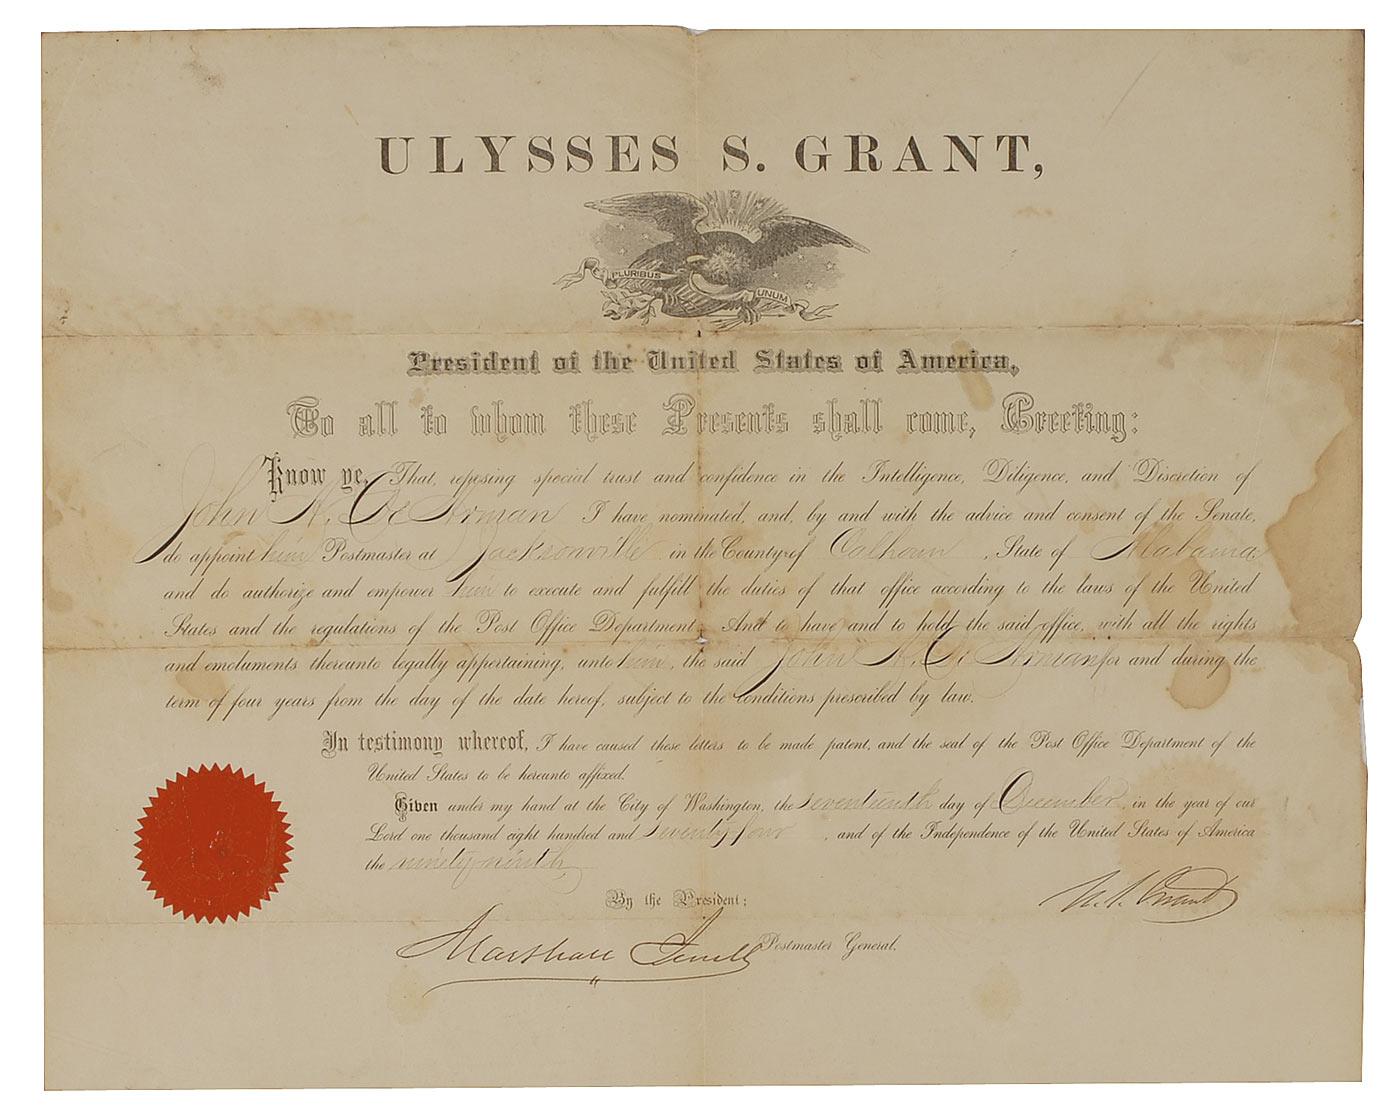 ULYSSES S. GRANT,
PLURIBUS
UNUM
President of the United States of America,
To all to whom these Presents shall come, Greeting:
Know ye, That, reposing special trust and confidence in the Intelligence, Diligence, and Discretion of
John A. De Arman I have nominated, and, by and with the advice and consent of the Senate,
do appoint him Postmaster at Jacksonville in the County of Calhoun, State of Alabama
and do authorize and empower him to execute and fulfill the duties of that office according to the laws of the United
States and the regulations of the Post Office Department. And to have and to hold the said office, with all the rights
and emoluments thereunto legally appertaining, unto him, the said John A. De Arman for and during the
term of four years from the day of the date hereof, subject to the conditions prescribed by law.
In testimony whereof, I have caused these letters to be made patent, and the seal of the Post Office Department of the
United States to be hereunto affixed.
Given under my hand at the City of Washington, the seventeenth day of December, in the year of our
Lord one thousand eight hundred and seventy four, and of the Independence of the United States of America
the ninety-ninth
By the President:
U. S. Grant
Marshall Jewell Postmaster General.